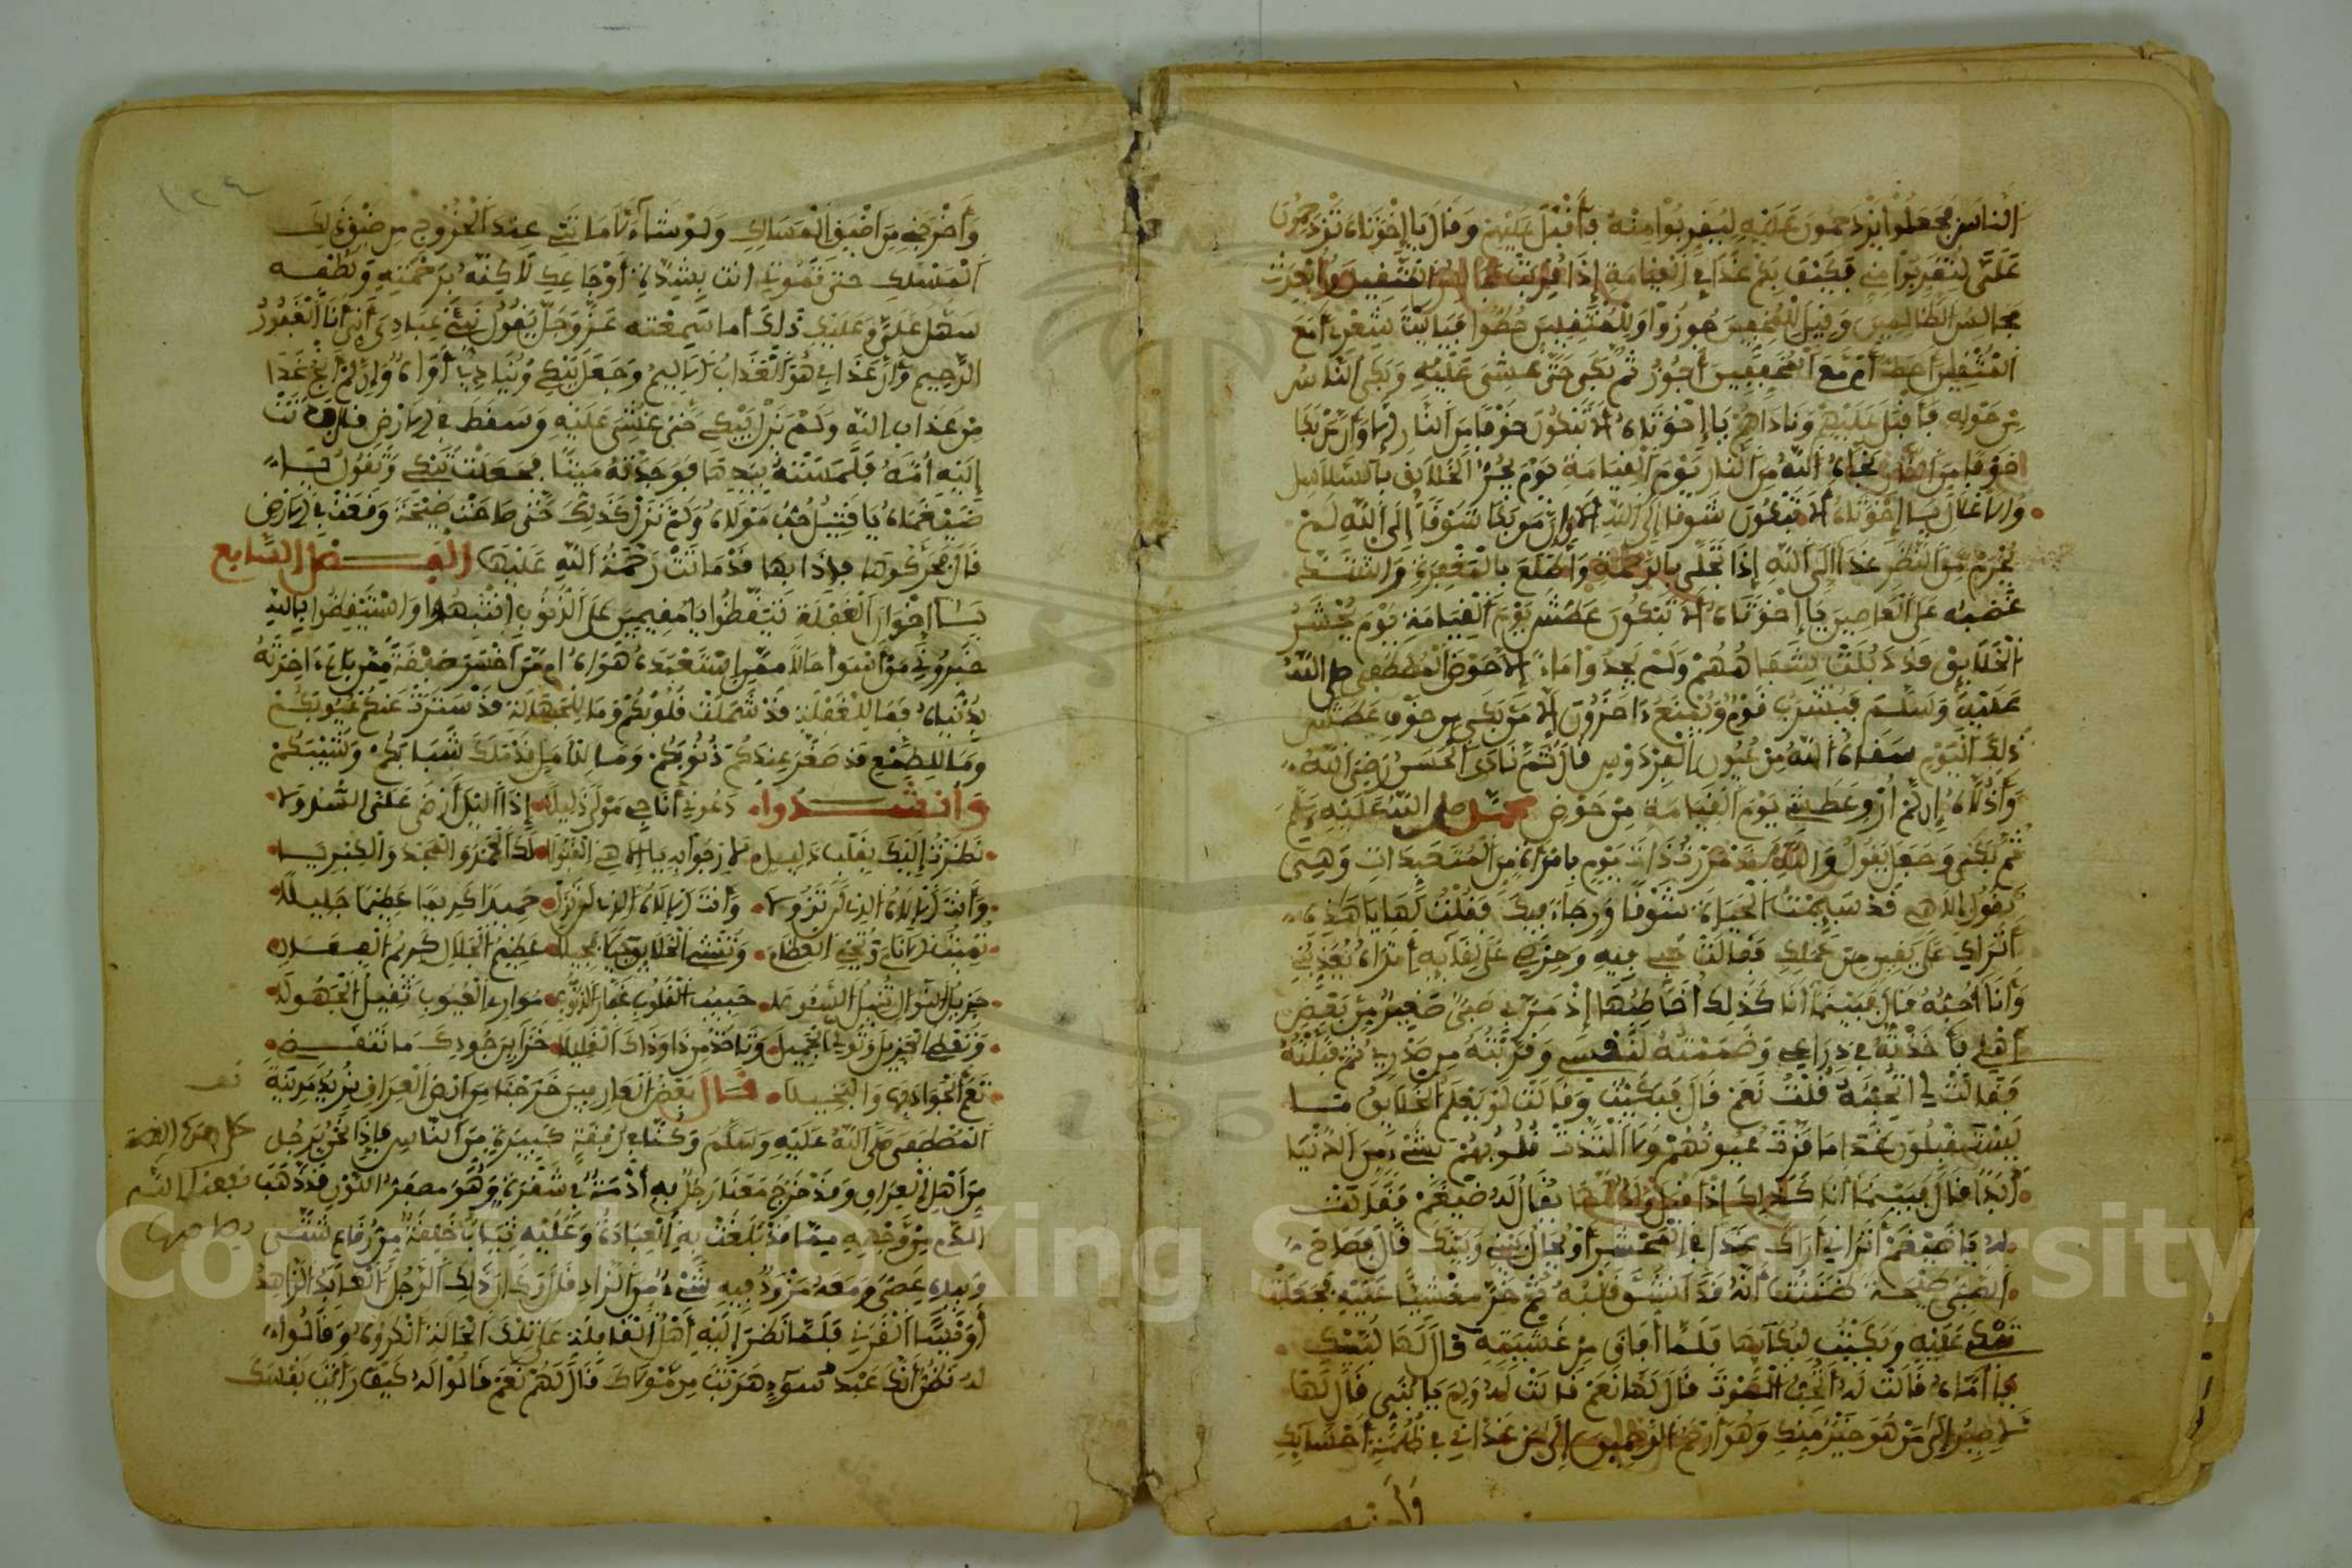 الناس فجعلوا يزدحمون عليه ليقربوا منه فأقبل عليهم وقال يا إخوتاه تزدحمون
علي لتقربوا مني فكيف بكم غدا في القيامة إذا قربت مجالس المتقين وأبعدت
مجالس الظالمين وقيل للمخفين جوزوا وللمثقلين حطوا فياليت شعري أمع
المثقلين أحط أم مع المخفين أجوز ثم بكى حتى غشي عليه وبكى الناس
من حوله فأقبل عليهم وناداهم يا إخوتاه ألا تبكون خوفا من النار ألا وإن من بكا
خوفا من النار نجاه الله من النار يوم القيامة يوم يجر الخلايق بالسلاسل
والاغلال يا إخوتاه ألا تبكون شوقا إلى الله ألا وإن من بكا شوقا إلى الله لم
يحرم من النظر غدا إلى الله إذا تجلى بالرحمة واطلع بالمغفرة واشتد
غضبه على العاصين يا إخوتاه ألا تبكون عطش يوم القيامة يوم يحشر
الخلايق وقد ذبلت شفاههم ولم يجدوا ماء إلا حوض المصطفى صلى الله
عليه وسلم فيشرب قوم ويمنع ءاخرون ألا من بكى من خوف عطش
ذلك اليوم سقاه الله من عيون الفردوس قال ثم نادى الحسن رضي الله
واذلاه إن لم ارو عطشي يوم القيامة من حوض محمد صلى الله عليه وسلم
ثم بكى وجعل يقول والله لقد مررت ذات يوم بامرأة من المتعبدات وهي
تقول إلاهي قد سيمت الحياة شوقا ورجاء فيك فقلت لها يا هذه
أتراك على يقين من عملك فقالت حبي فيه وحرصي على لقايه أتراه يعذبني
وأنا أحبه قال فبينما أنا كذلك أخاطبها إذ مر بي صبي صغير من بعض
أهلي فأخذته في ذراعي وضممته لنفسي وقربته من صدري ثم قبلته
فقالت لي اتحبه قلت نعم قال فبكيت وقالت لو يعلم الخلايق ما
يستقبلون غدا ما قرت عيونهم ولا التذت قلوبهم بشيء من الدنيا
أبدا قال فبينما أنا كذلك إذ أقبل ولد لها يقال له ضيغم فقالت
له يا ضيغم أتراني أراك غدا في المحشر أو يحال بيني وبينك قال فصاح
الصبي صيحة ظننت أنه قد انشق قلبه ثم خر مغشيا عليه فجعلت
تبكي عليه وبكيت لبكايها فلما أفاق من غشيته قال لها لبيك
يا أماه قالت له أتحب الموت قال لها نعم قالت له ولم يا بني قال لها
لأصير إلى من هو خير منك وهو أرحم الراحمين إلى من غذاني في ظلمة أحشايك
وأخرجني
وأخرجني من أضيق المسالك ولو شاء لأماتني عند الخروج من ضيق ذلك
المسلك حتى تموتي أنت بشدة أوجاعك لاكنه برحمته ولطفه
سهل علي وعليك ذلك أما سمعته عز وجل يقول نبئ عبادي أني أنا الغفور
الرحيم وأن عذابي هو العذاب الأليم وجعل يبكي وينادي أواه أواه إن لم أنج غدا
من عذاب الله ولم يزل يبكي حتى غشي عليه وسقط في الأرض فدنت
إليه أمه فلمسته بيدها فوجدته ميتا فجعلت تبكي وتقول يا
ضيغماه يا قتيل حب مولاه ولم تزل كذلك حتى صاحت صيحة ووقعت في الأرض
قال فحركوها فإذا بها قد ماتت رحمة الله عليها الفصل السابع
يا إخوان الغفلة تيقظوا يا مقيمين على الذنوب انتبهوا واستيقظوا بالله
خبروني من أسوأ حالا ممن استعبده هواه أم من أخسر صفقة ممن باع ءاخرته
بدنياه فما للغفلة قد شملت قلوبكم وما للجهالة قد سترت عنكم عيوبكم
وما للطمع قد صغر عندكم ذنوبكم وما للأمل قد ملك شبابكم وشيبكم
وأنشدوا دعوني أناجي مولى جليلا إذا الليل أرخى علي السدولا
نظرت إليك بقلب ذليل لأرجو به يا إلاهي القبولا لك الحمد والمجد والكبريا
وأنت الإلاه الذي لن يزولا وأنت الإلاه الذي لم يزل حميدا كريما عظيما جليلا
تميت الأنام وتحيي العظام وتنشي الخلايق جيلا فجيلا عظيم الجلال كريم الفعال
جزيل النوال تنيل السئولا حبيب القلوب غفار الذنوب تواري العيوب تقيل الجهولا
وتعطي الجزيل وتولي الجميل وتأخذ من ذا وذاك القليلا خزاين جودك ما تنقضي
تعم الجواد بها والبخيلا قال بعض العارفين خرجنا من أرض العراق نريد مدينة
المصطفى صلى الله عليه وسلم وكنا في رفقة كبيرة من الناس فإذا نحن برجل
من أهل العراق وقد خرج معنا رجل به أدمة في شقرة وهو مصفر اللون قد ذهب
الدم من وجهه مما قد بلغت به العبادة وعليه ثياب خلقة من رقاع شتى
وبيده عصى ومعه مزود فيه شيء من الزاد قال وكان ذلك الرجل العابد الزاهد
أويسا القرني فلما نظر إليه أهل القافلة على تلك الحالة انكروه وقالوا
له نظن أنك عبد سوء هربت من مولاك قال لهم نعم قالوا له كيف رأيت نفسك